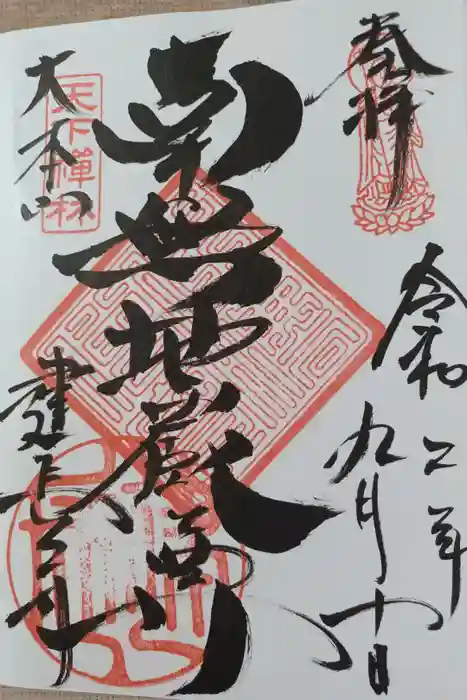 奉拝
令和二年
九月十日
南無地蔵尊
大本山
天下禅林
建長寺